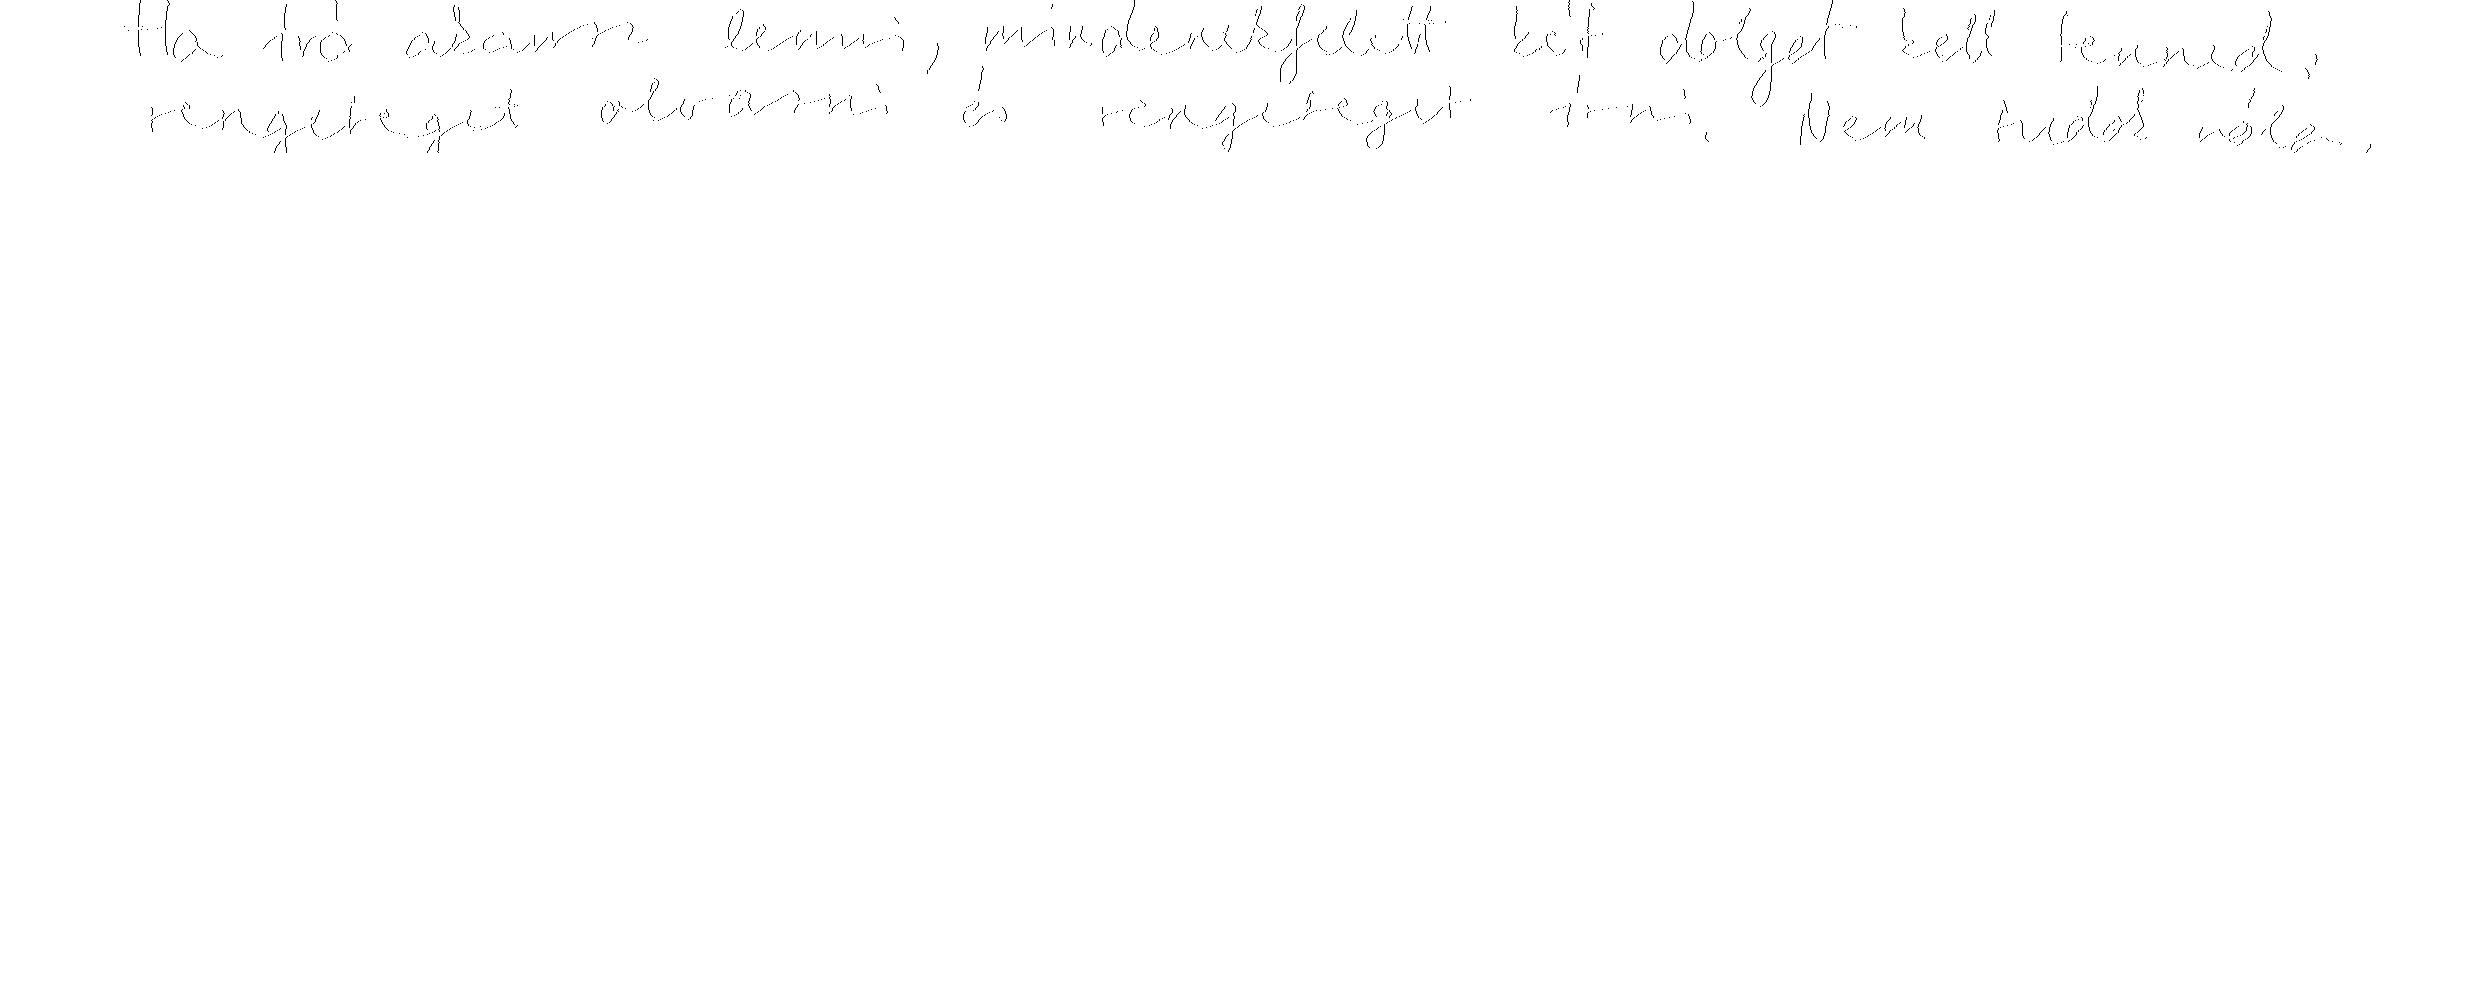 Ha író akarsz lenni, mindenekfelett két dolgot kell tenned:
rengeteget olvasni és rengeteget írni. Nem tudok róla,